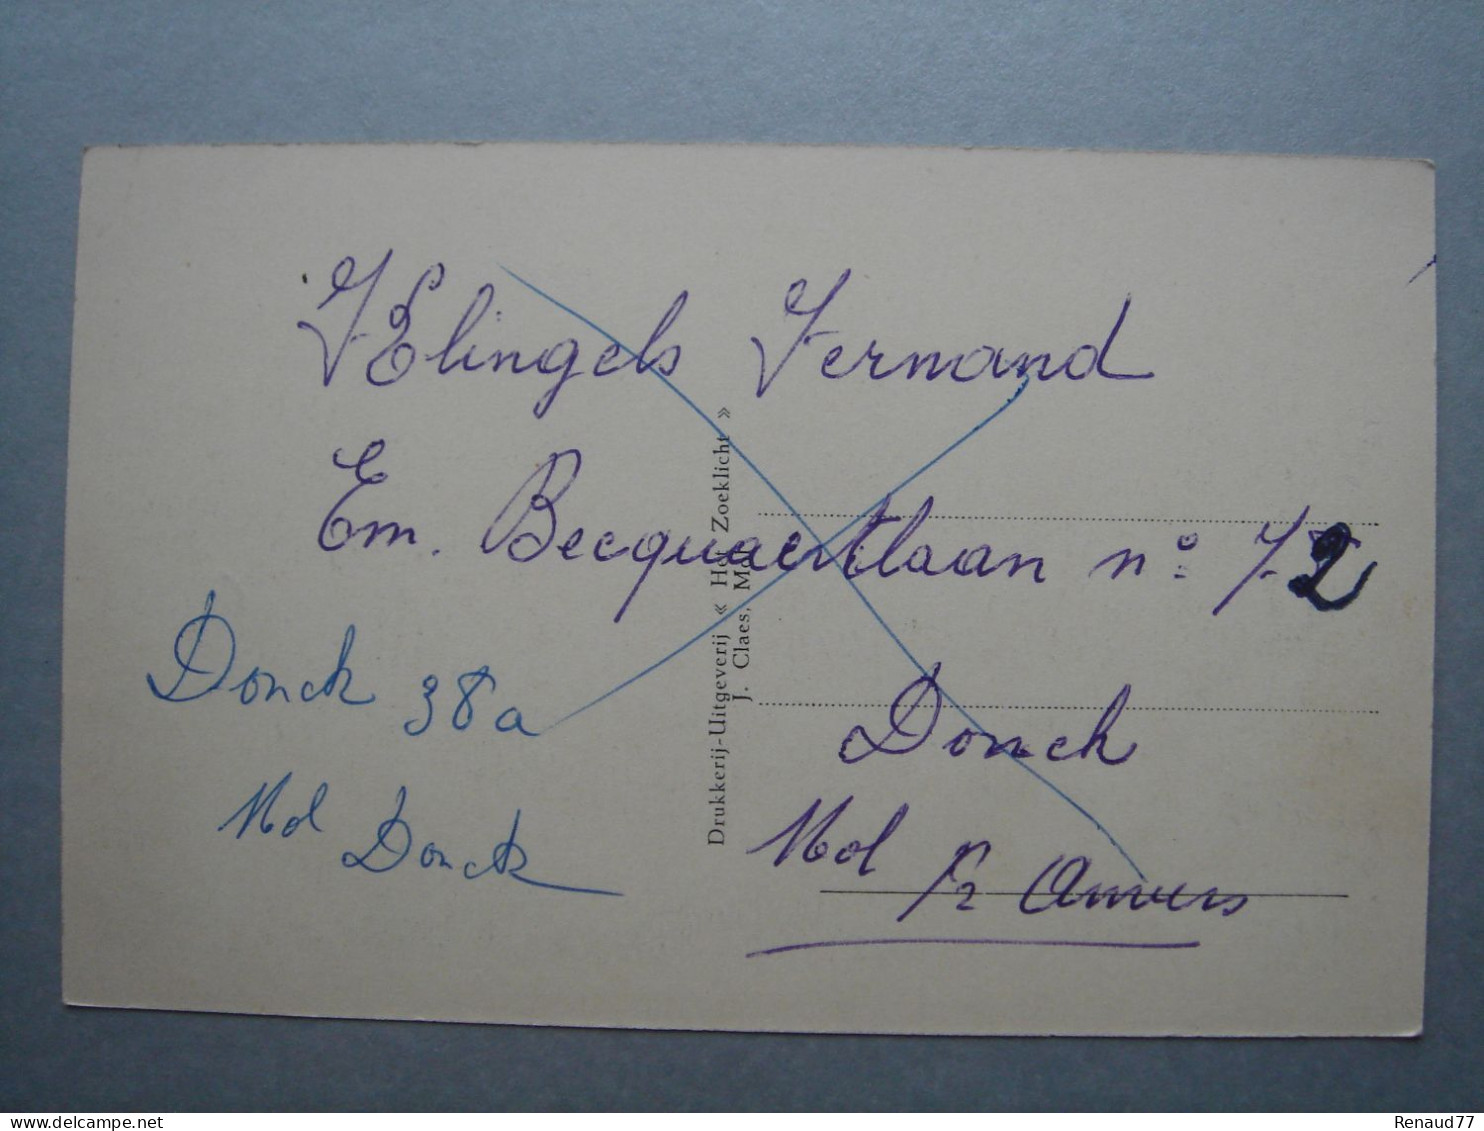 Elingels Fernand
Em. Becquaertlaan n° 72
Donck
Mol Pr Anvers
Donck 38a
Mol Donck
Drukkerij-Uitgeverij « Het Zoeklicht »
J. Claes, Mol
Renaud77